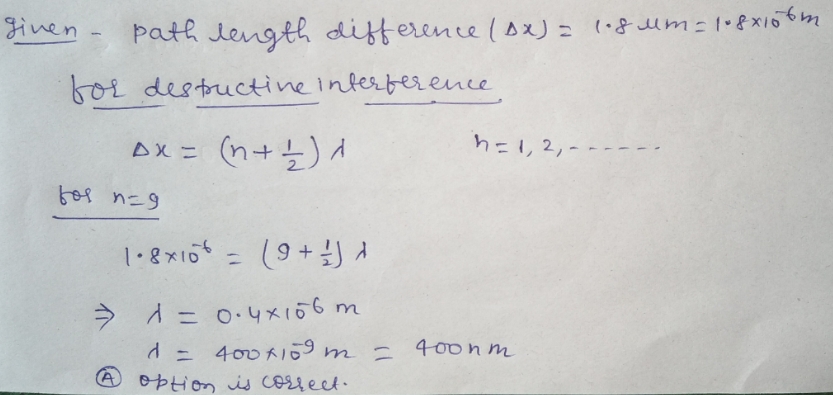 Given - path length difference (Δx) = 1.8 μm = 1.8×10⁻⁶ m
for destructive interference
Δx = (n + 1/2) λ n = 1, 2, ------
for n=9
1.8×10⁻⁶ = (9 + 1/2) λ
⇒ λ = 0.4×10⁻⁶ m
λ = 400×10⁻⁹ m = 400nm
Ⓐ option is correct.